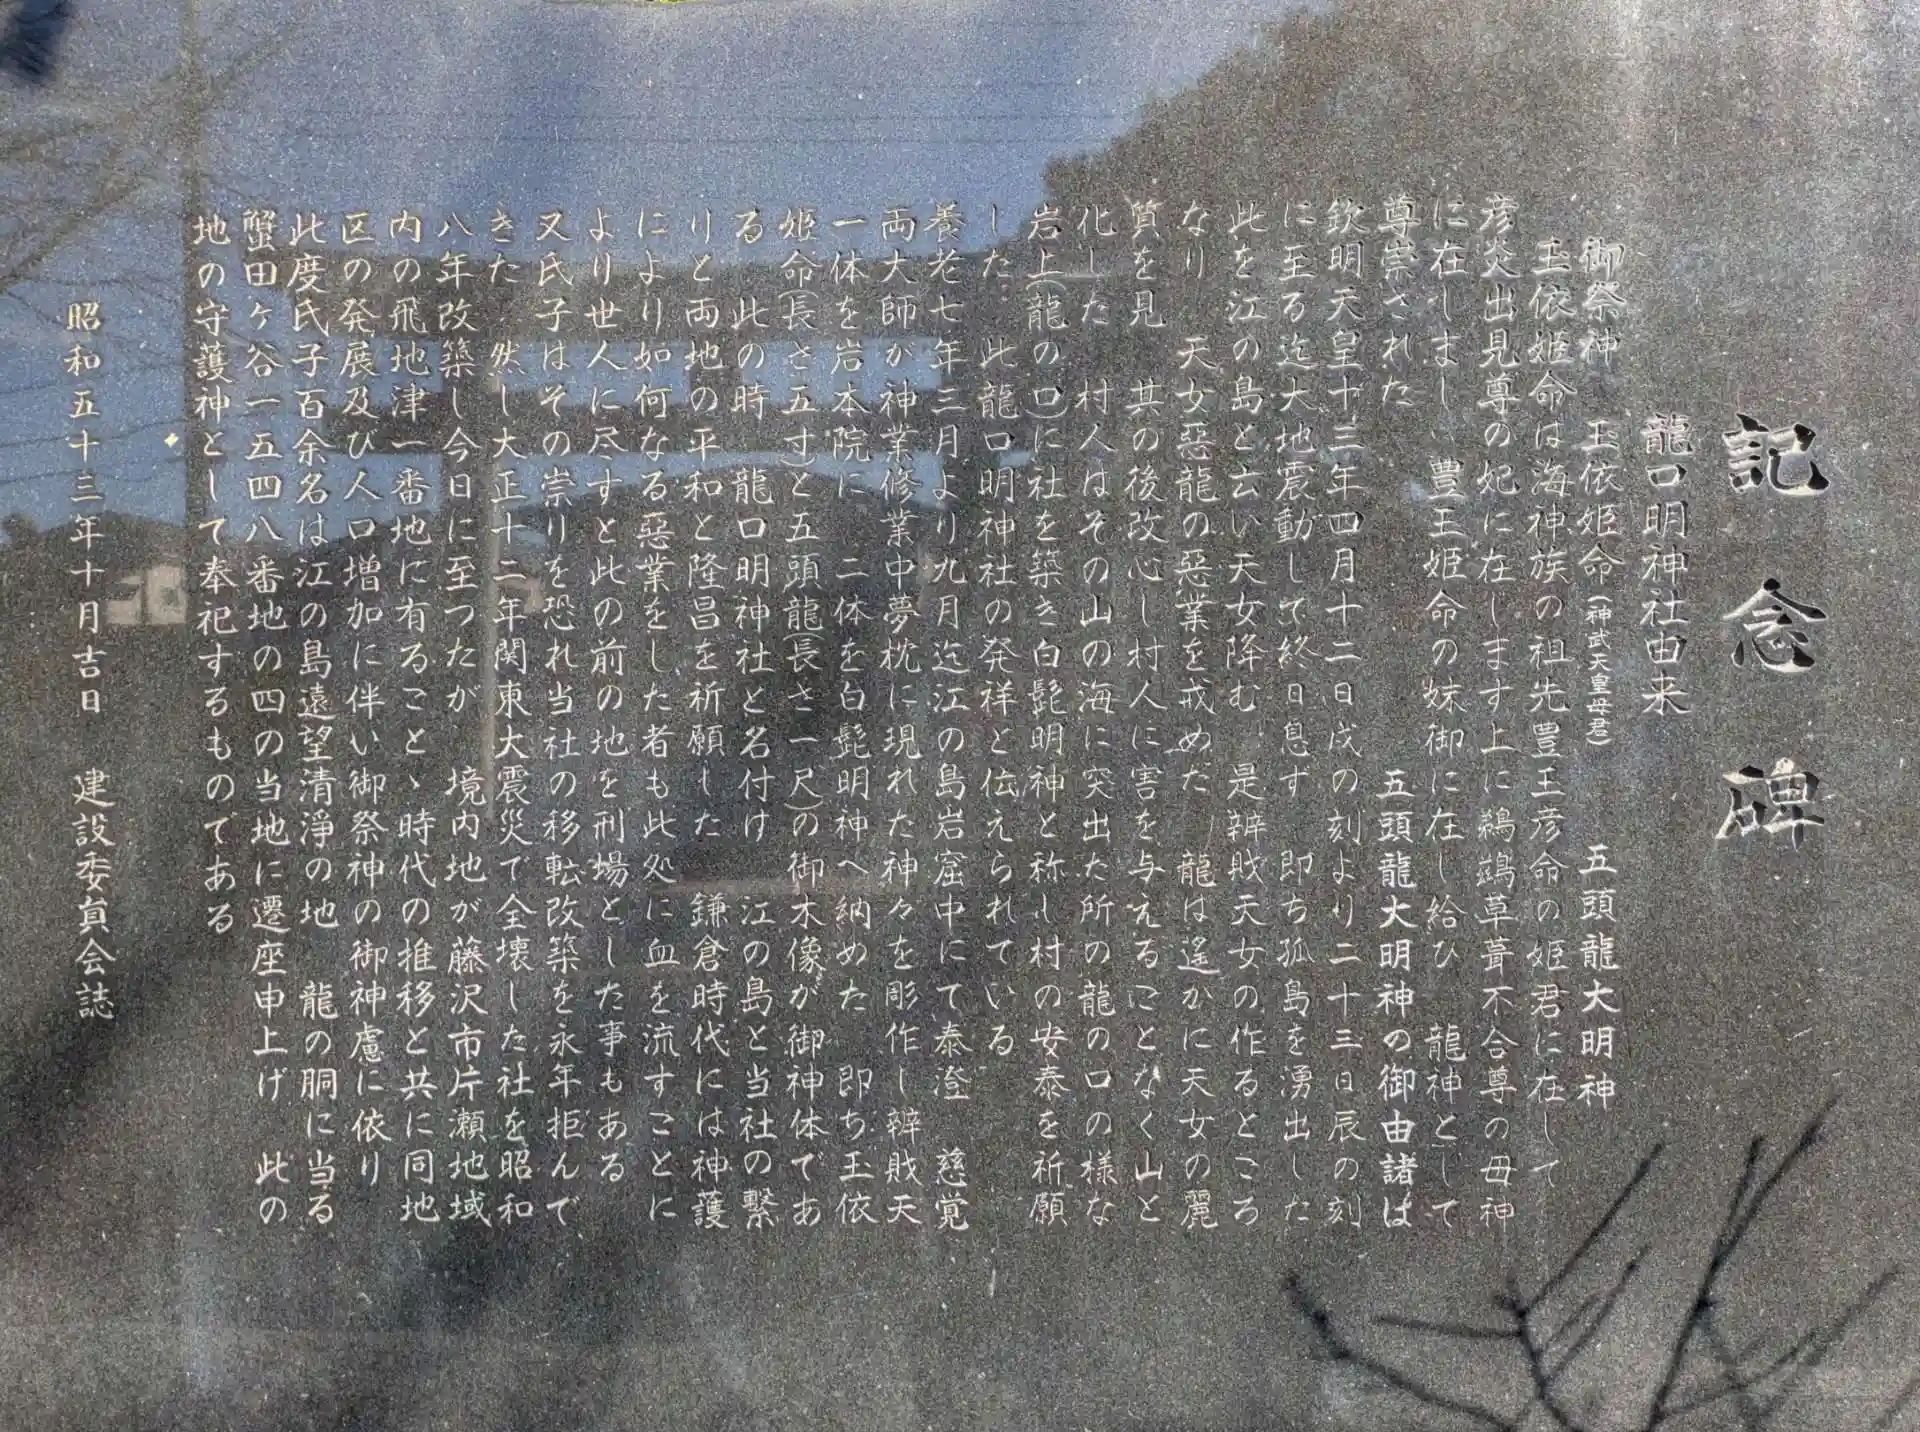 記念碑
龍口明神社由来
御祭神 玉依姫命(神武天皇母君) 五頭龍大明神
玉依姫命は海神族の祖先豊玉彦命の姫君に在して
彦火出見尊の妃に在します上に鵜鷀草葺不合尊の母神
に在しまし 豊玉姫命の妹御に在し給ひ 龍神として
尊崇された 五頭龍大明神の御由諸は
欽明天皇十三年四月十二日戌の刻より二十三日辰の刻
に至る迄大地震動して終日息す 即ち孤島を湧出した
此を江の島と云い天女降む 是辨財天女の作るところ
なり 天女惡龍の惡業を戒めた 龍は遙かに天女の麗
質を見 其の後改心し村人に害を与えることなく山と
化した 村人はその山の海に突出た所の龍の口の様な
岩上(龍の口)に社を築き白髭明神と称し村の安泰を祈願
した 此龍口明神社の発祥と伝えられている
養老七年三月より九月迄江の島岩窟中にて泰澄 慈覚
両大師が神業修業中夢枕に現れた神々を彫作し辨財天
一体を岩本院に 二体を白髭明神へ納めた 即ち玉依
姫命(長さ五寸)と五頭龍(長さ一尺)の御木像が御神体であ
る 此の時 龍口明神社と名付け 江の島と当社の繋
りと両地の平和と隆昌を祈願した 鎌倉時代には神護
により如何なる惡業をした者も此処に血を流すことに
より世人に尽すと此の前の地を刑場とした事もある
又氏子はその崇りを恐れ当社の移転改築を永年拒んで
きた 然し大正十二年関東大震災で全壊した社を昭和
八年改築し今日に至つたが 境内地が藤沢市片瀬地域
内の飛地津一番地に有ることゝ時代の推移と共に同地
区の発展及び人口増加に伴い御祭神の御神慮に依り
此度氏子百余名は江の島遠望清淨の地 龍の胴に当る
蟹田ヶ谷一五四八番地の四の当地に遷座申上げ 此の
地の守護神として奉祀するものである
昭和五十三年十月吉日 建設委員会誌